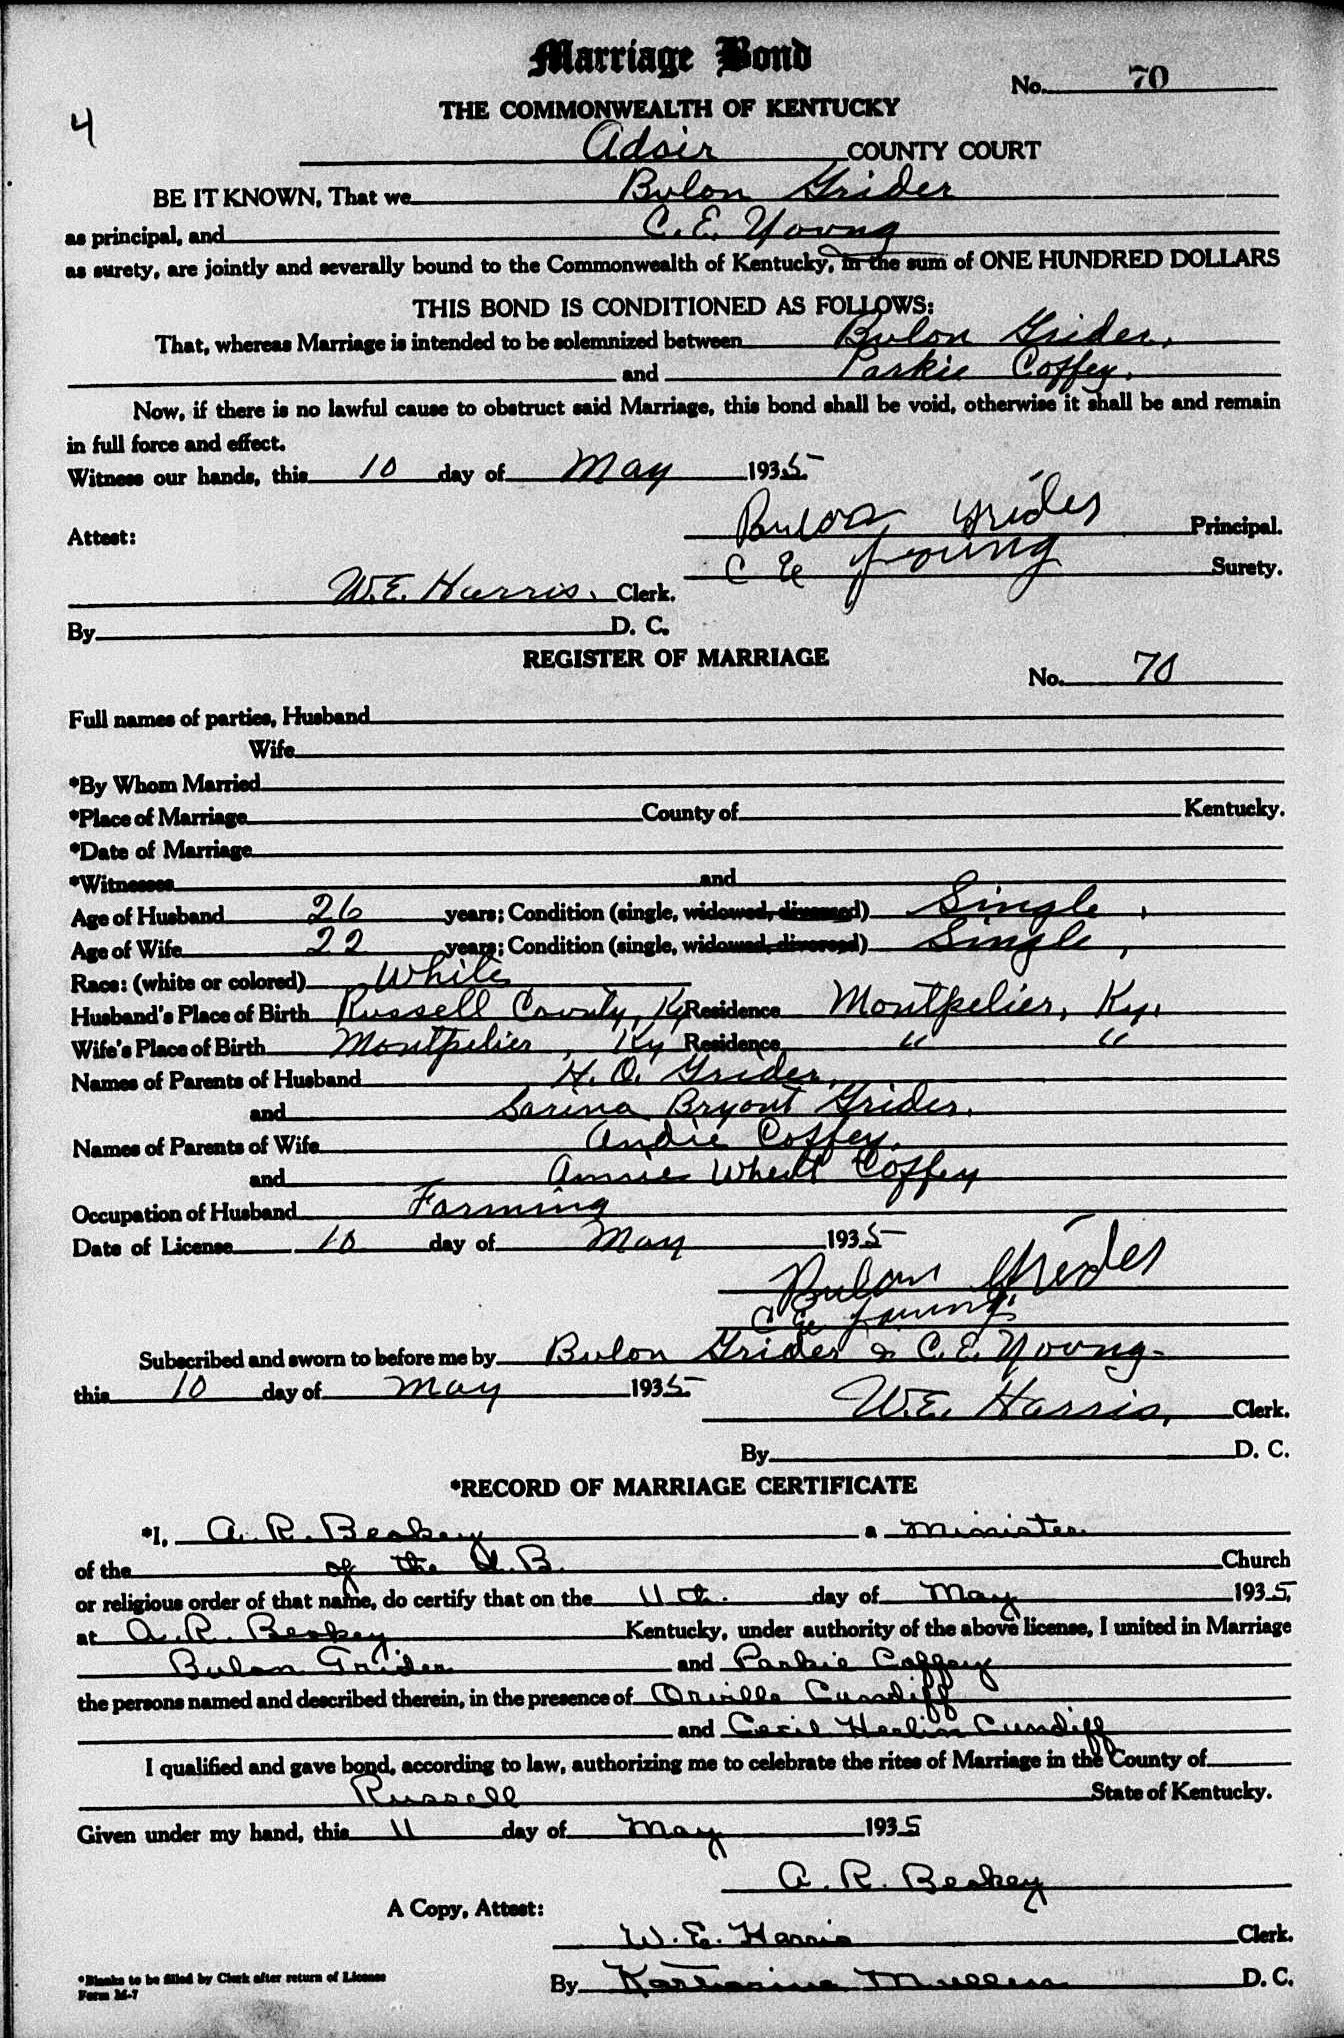 Marriage Bond
No. 70
4
THE COMMONWEALTH OF KENTUCKY
Adair COUNTY COURT
BE IT KNOWN, That we Bulon Grider
as principal, and C. E. Young
as surety, are jointly and severally bound to the Commonwealth of Kentucky, in the sum of ONE HUNDRED DOLLARS
THIS BOND IS CONDITIONED AS FOLLOWS:
That, whereas Marriage is intended to be solemnized between Bulon Grider,
and Parkie Coffey.
Now, if there is no lawful cause to obstruct said Marriage, this bond shall be void, otherwise it shall be and remain
in full force and effect.
Witness our hands, this 10 day of May 1935
Bulon Grider Principal.
Attest:
C E Young Surety.
W.E. Harris. Clerk.
By D. C.
REGISTER OF MARRIAGE
No. 70
Full names of parties, Husband
Wife
*By Whom Married
*Place of Marriage County of Kentucky.
*Date of Marriage
*Witnesses and
Age of Husband 26 years; Condition (single, widowed, divorced) Single,
Age of Wife 22 years; Condition (single, widowed, divorced) Single,
Race: (white or colored) White
Husband's Place of Birth Russell County, Ky Residence Montpelier, Ky.
Wife's Place of Birth Montpelier, Ky Residence " "
Names of Parents of Husband H. O. Grider,
and Sarina Bryant Grider.
Names of Parents of Wife Andie Coffey.
and Annie Wheat Coffey
Occupation of Husband Farming
Date of License 10 day of May 1935
Bulon Grider
C E Young
Subscribed and sworn to before me by Bulon Grider & C. E. Young
this 10 day of May 1935
W.E. Harris, Clerk.
By D. C.
*RECORD OF MARRIAGE CERTIFICATE
*I, A. R. Beakey a Minister
of the of the U.B. Church
or religious order of that name, do certify that on the 11th. day of May 1935
at A. R. Beakey Kentucky, under authority of the above license, I united in Marriage
Bulon Grider and Parkie Coffey
the persons named and described therein, in the presence of Orville Cundiff
and Cecil Cundiff
I qualified and gave bond, according to law, authorizing me to celebrate the rites of Marriage in the County of
Russell State of Kentucky.
Given under my hand, this 11 day of May 1935
A. R. Beakey
A Copy, Attest:
W. E. Harris Clerk.
*Blanks to be filled by Clerk after return of License
By Katharine Mullens D. C.
Form M-7